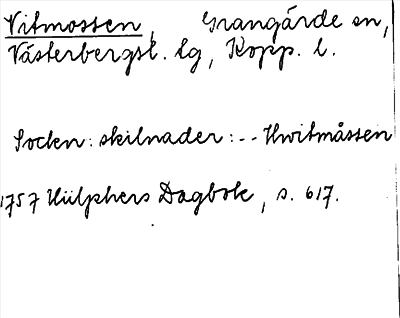 Vitmossen, Grangärde sn,
Västerbergsl. lg, Kopp. l.
Socken: skilnader: -- Hwitmåssen
1757 Hülphers Dagbok, s. 617.